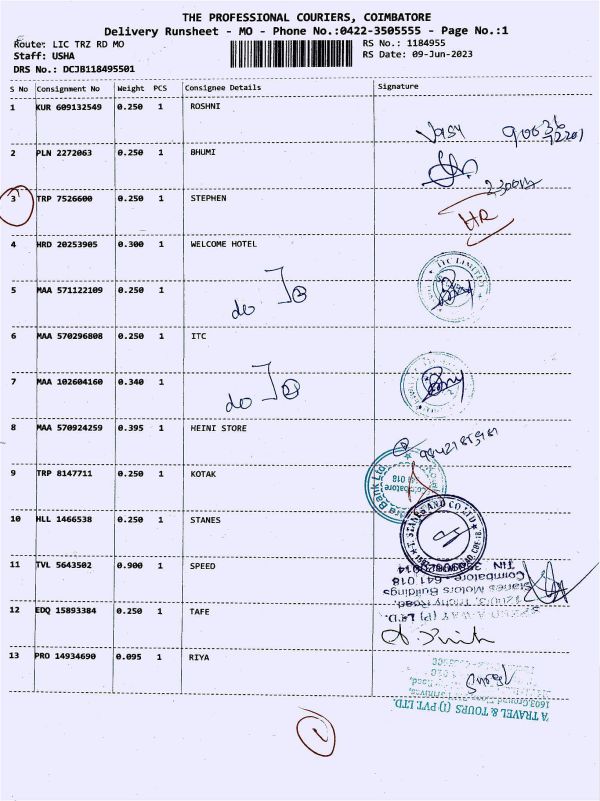 THE PROFESSIONAL COURIERS, COIMBATORE
Delivery Runsheet - MO - Phone No.:0422-3505555 - Page No.:1
Route: LIC TRZ RD MO RS No.: 1184955
Staff: USHA RS Date: 09-Jun-2023
DRS No.: DCJB118495501
S No Consignment No Weight PCS Consignee Details Signature
1 KUR 609132549 0.250 1 ROSHNI
2 PLN 2272063 0.250 1 BHUMI
3 TRP 7526600 0.250 1 STEPHEN
HR
4 HRD 20253905 0.300 1 WELCOME HOTEL
ITC LIMITED
5 MAA 571122109 0.250 1
do
6 MAA 570296808 0.250 1 ITC
7 MAA 102604160 0.340 1
do
8 MAA 570924259 0.395 1 HEINI STORE
9 TRP 8147711 0.250 1 KOTAK
Bank Ltd
Coimbatore
641 018
10 HLL 1466538 0.250 1 STANES
T. STANES AND CO LTD
11 TVL 5643502 0.900 1 SPEED
TIN
Coimbatore - 641 018
Stanes Motors Buildings
Trichy Road
(P) LTD.
12 EDQ 15893384 0.250 1 TAFE
13 PRO 14934690 0.095 1 RIYA
TRAVEL & TOURS (I) PVT. LTD.